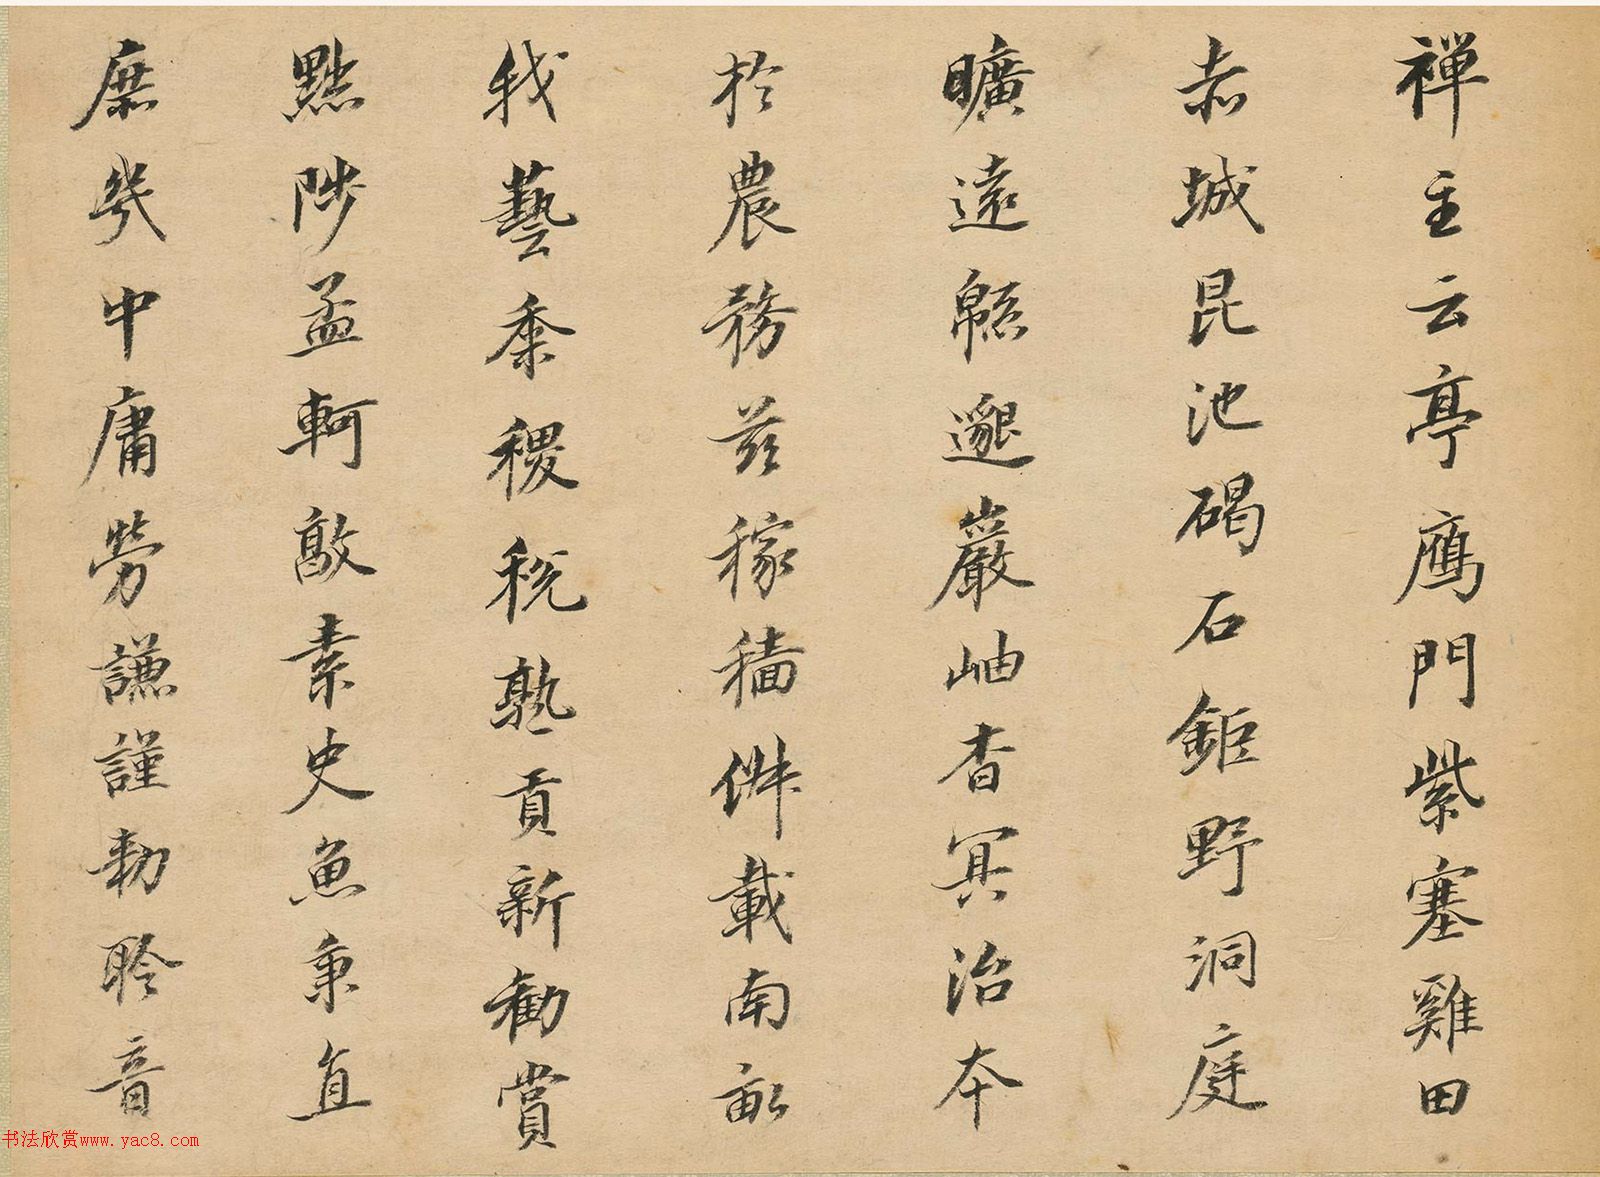 禪主云亭鴈門紫塞雞田
赤城昆池碣石鉅野洞庭
曠遠緜邈巖岫杳冥治本
於農務茲稼穡俶載南畝
我藝黍稷稅熟貢新勸賞
黜陟孟軻敦素史魚秉直
庶幾中庸勞謙謹勅聆音
书法欣赏www.yac8.com